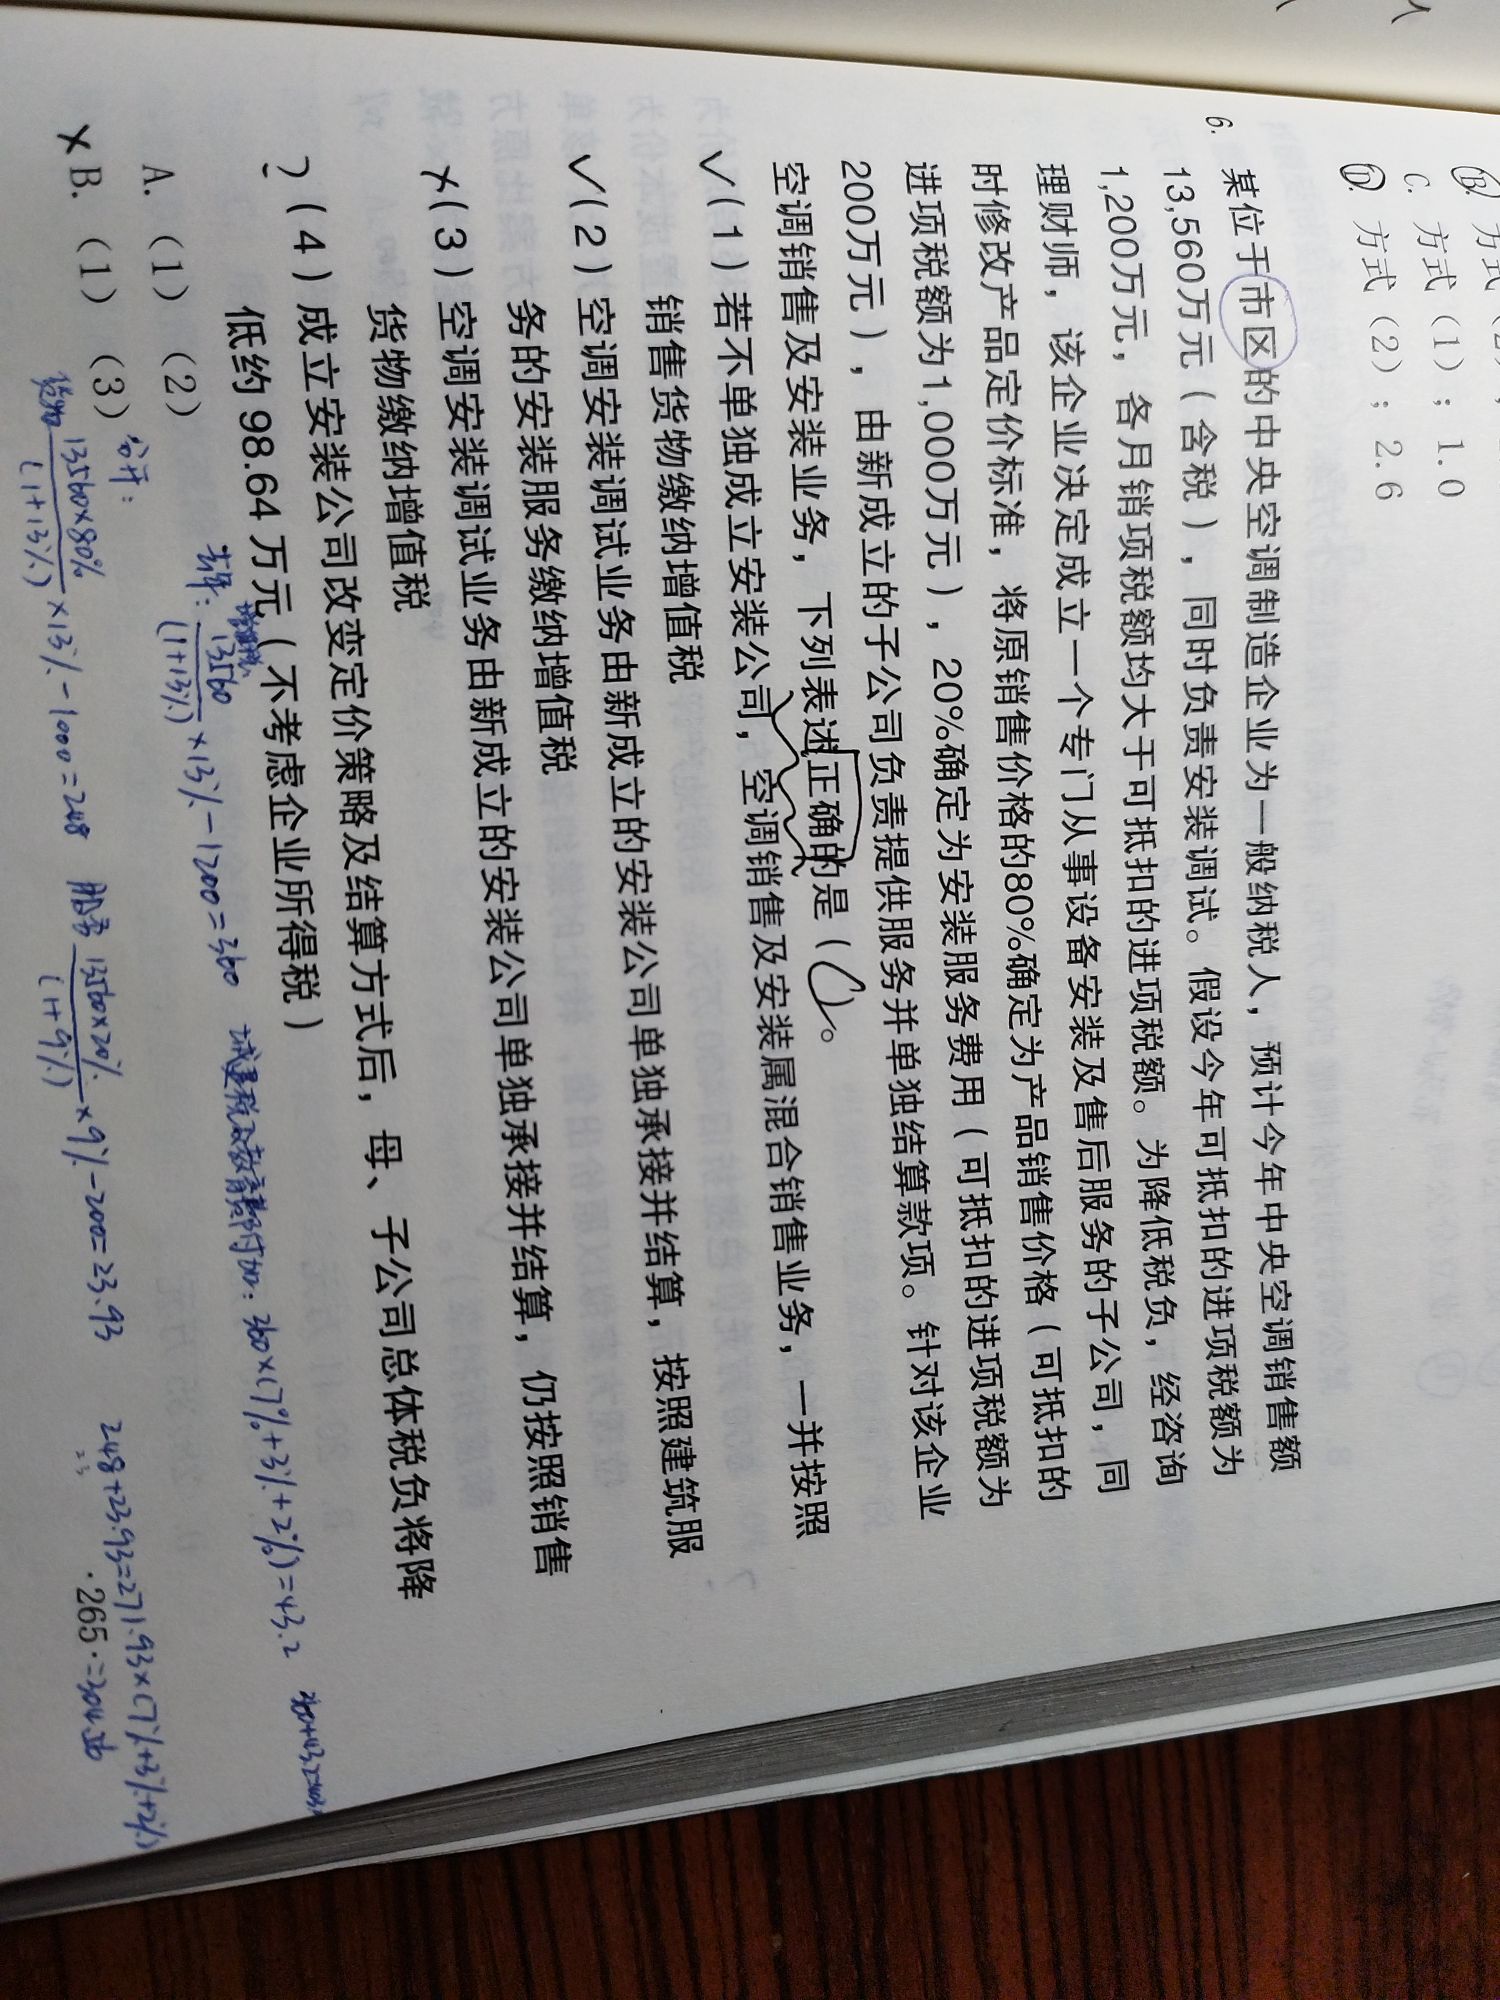 B. 方式
C. 方式（1）；1.0
D. 方式（2）；2.6
6. 某位于市区的中央空调制造企业为一般纳税人，预计今年中央空调销售额
13,560万元（含税），同时负责安装调试。假设今年可抵扣的进项税额为
1,200万元，各月销项税额均大于可抵扣的进项税额。为降低税负，经咨询
理财师，该企业决定成立一个专门从事设备安装及售后服务的子公司，同
时修改产品定价标准，将原销售价格的80%确定为产品销售价格（可抵扣的
进项税额为1,000万元），20%确定为安装服务费用（可抵扣的进项税额为
200万元），由新成立的子公司负责提供服务并单独结算款项。针对该企业
空调销售及安装业务，下列表述正确的是（ ）。
✓（1）若不单独成立安装公司，空调销售及安装属混合销售业务，一并按照
销售货物缴纳增值税
✓（2）空调安装调试业务由新成立的安装公司单独承接并结算，按照建筑服
务的安装服务缴纳增值税
×（3）空调安装调试业务由新成立的安装公司单独承接并结算，仍按照销售
货物缴纳增值税
?（4）成立安装公司改变定价策略及结算方式后，母、子公司总体税负将降
低约 98.64 万元（不考虑企业所得税）
增值税 13560/(1+13%)×13%-1200=360 城建税及教育费附加：360×(7%+3%+2%)=43.2
A.（1）（2）
×B.（1）（3）
分开：
货物 13560×80%/(1+13%)×13%-1000=248 服务 13560×20%/(1+9%)×9%-200=23.93 248+23.93=271.93×(7%+3%+2%)
=304.56
·265·